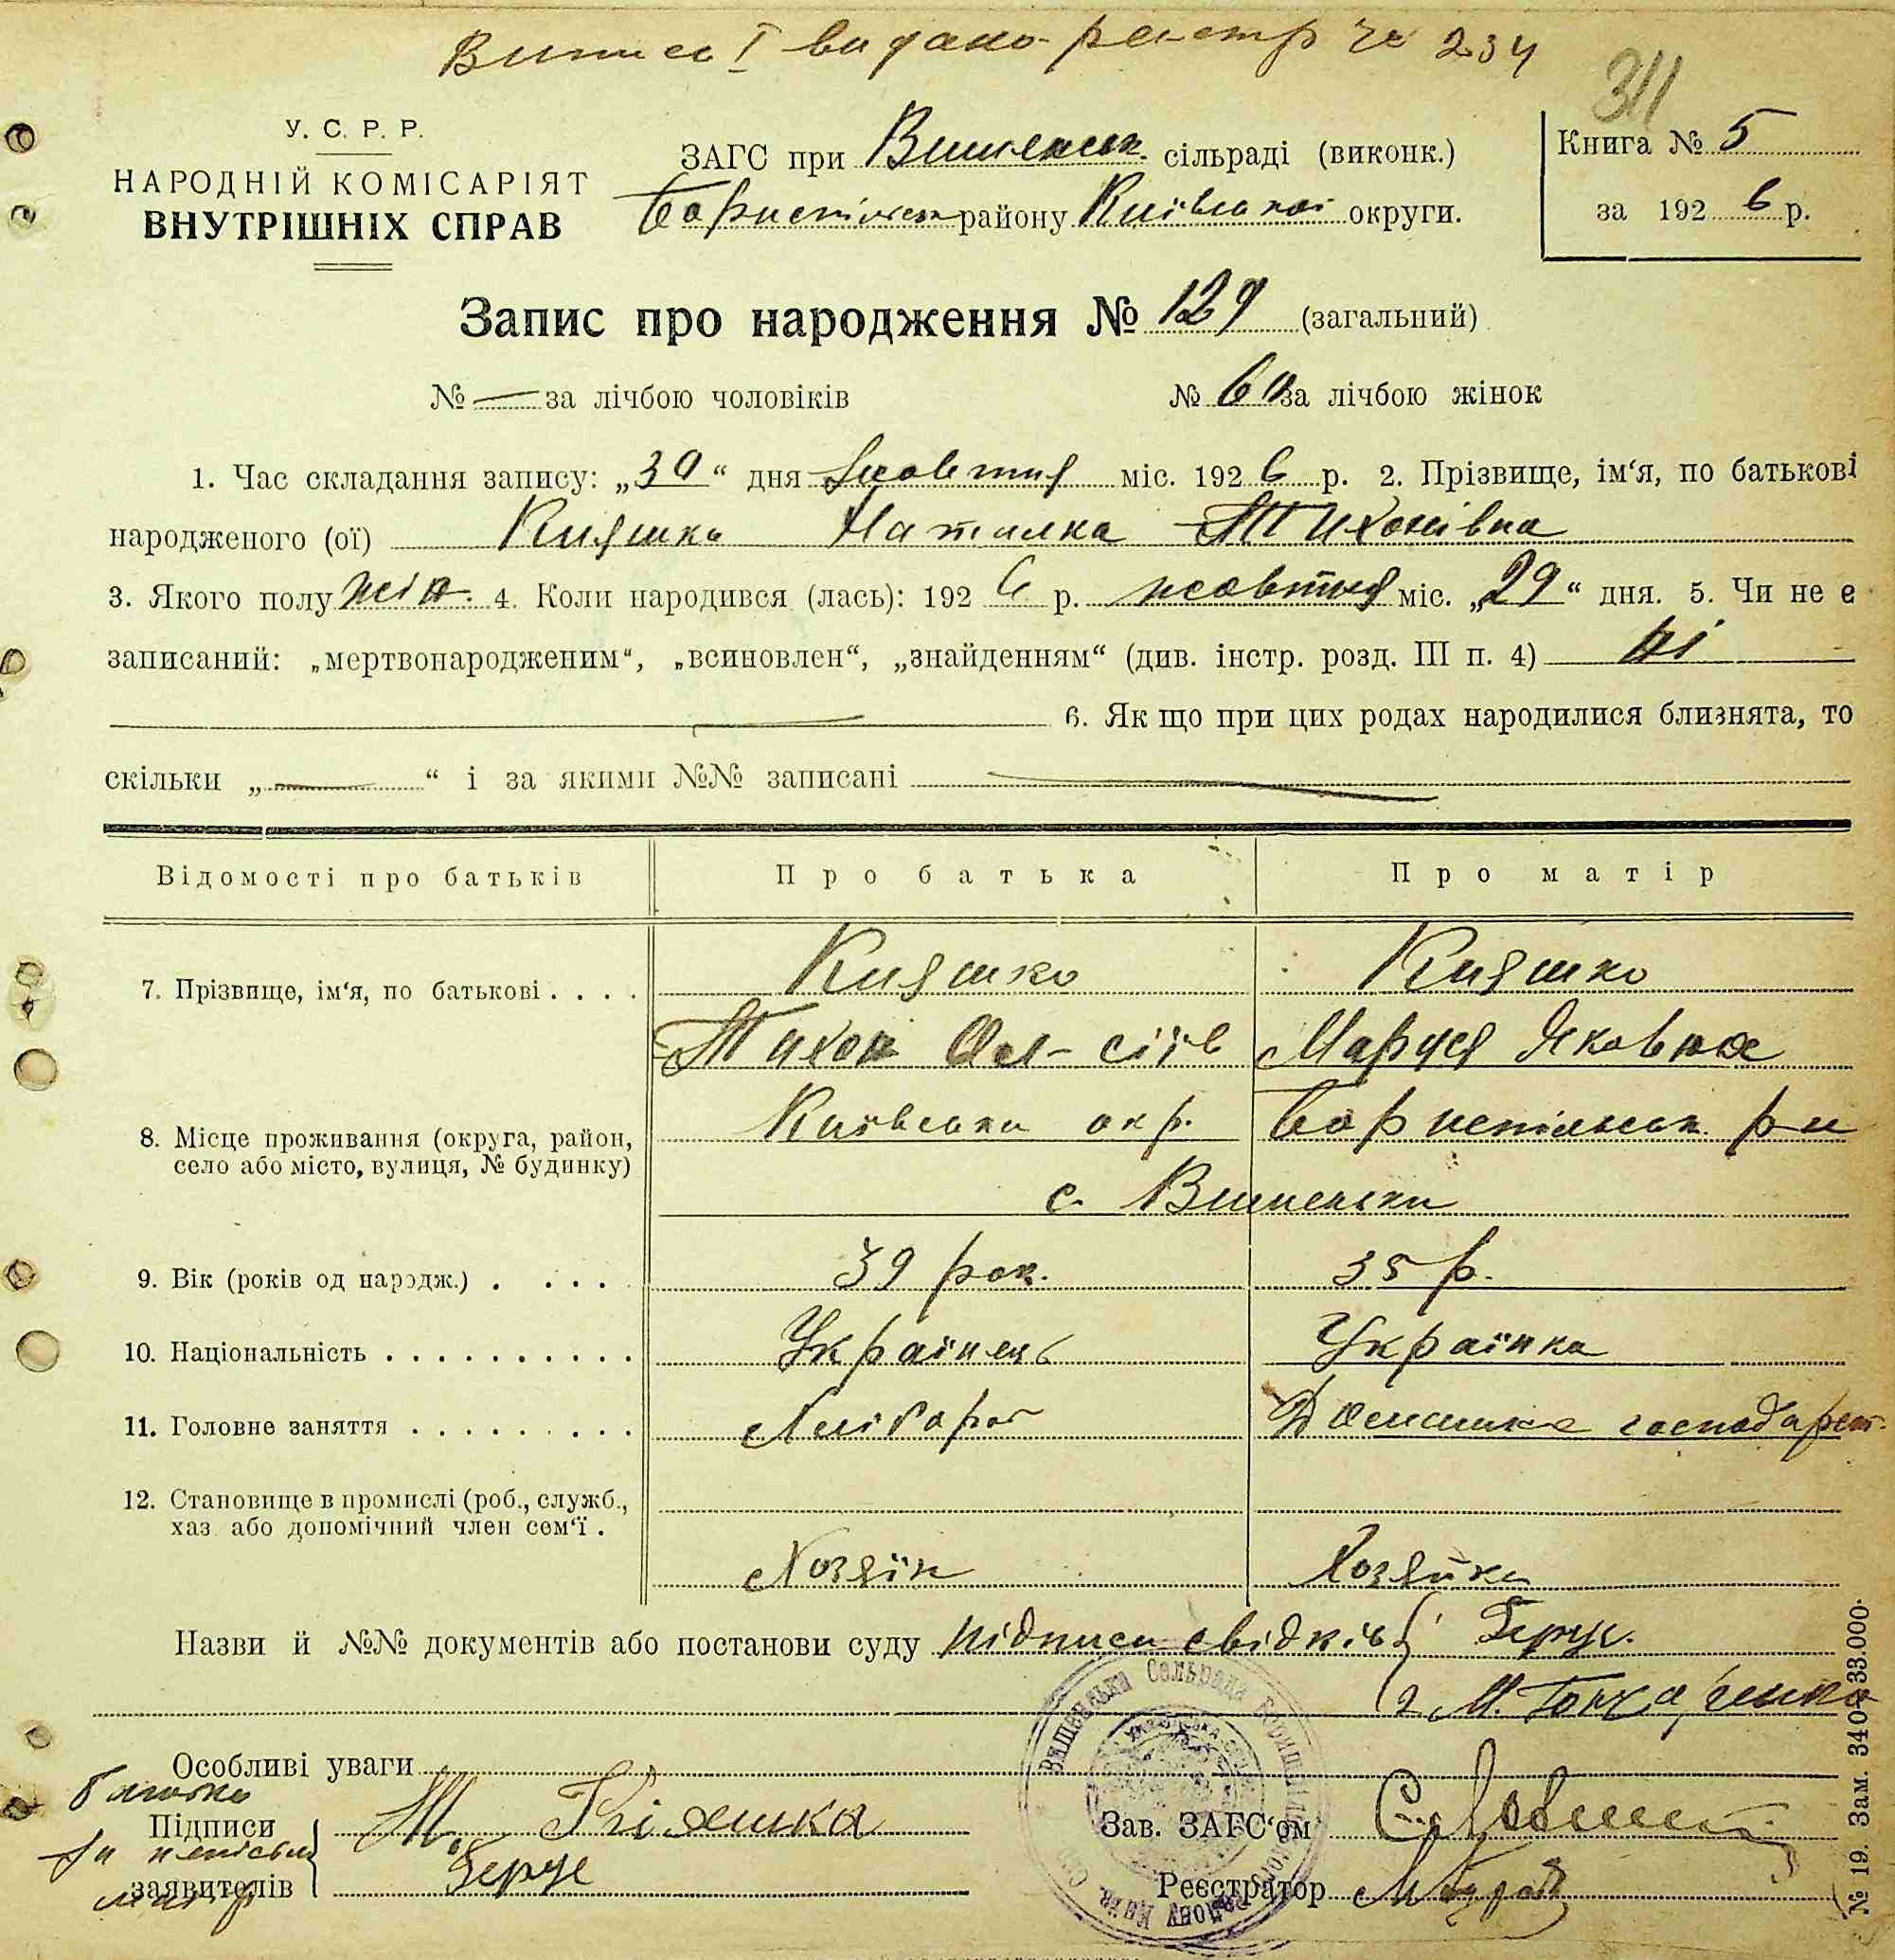 Випись I видано реєстр № 234
311
У. С. Р. Р.
НАРОДНІЙ КОМІСАРІЯТ
ВНУТРІШНІХ СПРАВ
ЗАГС при Вишенськ. сільраді (виконк.)
Бориспільськ району Київської округи.
Книга № 5
за 1926 р.
Запис про народження № 129 (загальний)
№ — за лічбою чоловіків № 60 за лічбою жінок
1. Час складання запису: „30“ дня жовтня міс. 1926 р. 2. Прізвище, ім‘я, по батькові
народженого (ої) Кияшко Наталка Тихонівна
3. Якого полу жін. 4. Коли народився (лась): 1926 р. жовтня міс. „29“ дня. 5. Чи не є
записаний: „мертвонародженим“, „всиновлен“, „знайденням“ (див. інстр. розд. III п. 4) ні
6. Як що при цих родах народилися близнята, то
скільки „ — “ і за якими №№ записані —
Відомості про батьків Про батька Про матір
7. Прізвище, ім‘я, по батькові . . . . Кияшко Кияшко
Тихон Ол-сіїв Маруся Яковна
8. Місце проживання (округа, район, Київська окр. Бориспільськ р-н
село або місто, вулиця, № будинку)
с. Вишеньки
9. Вік (років од народж.) . . . . 39 рок. 35 р.
10. Національність . . . . . . . . . . . Українець Українка
11. Головне заняття . . . . . . . . . Хлібороб Домашнє господарст.
12. Становище в промислі (роб., служб.,
хаз або допомічний член сем‘ї .
Хозяїн Хозяйка
Назви й №№ документів або постанови суду підписи свідків { 1 Герус.
2 М. Гончаренко
Особливі уваги
батько
Підписи
за неписьм
заявителів
матір
Т. Кіяшка
Герус
Зав. ЗАГС‘ом
Реєстратор
№ 19. Зам. 3407-33.000.